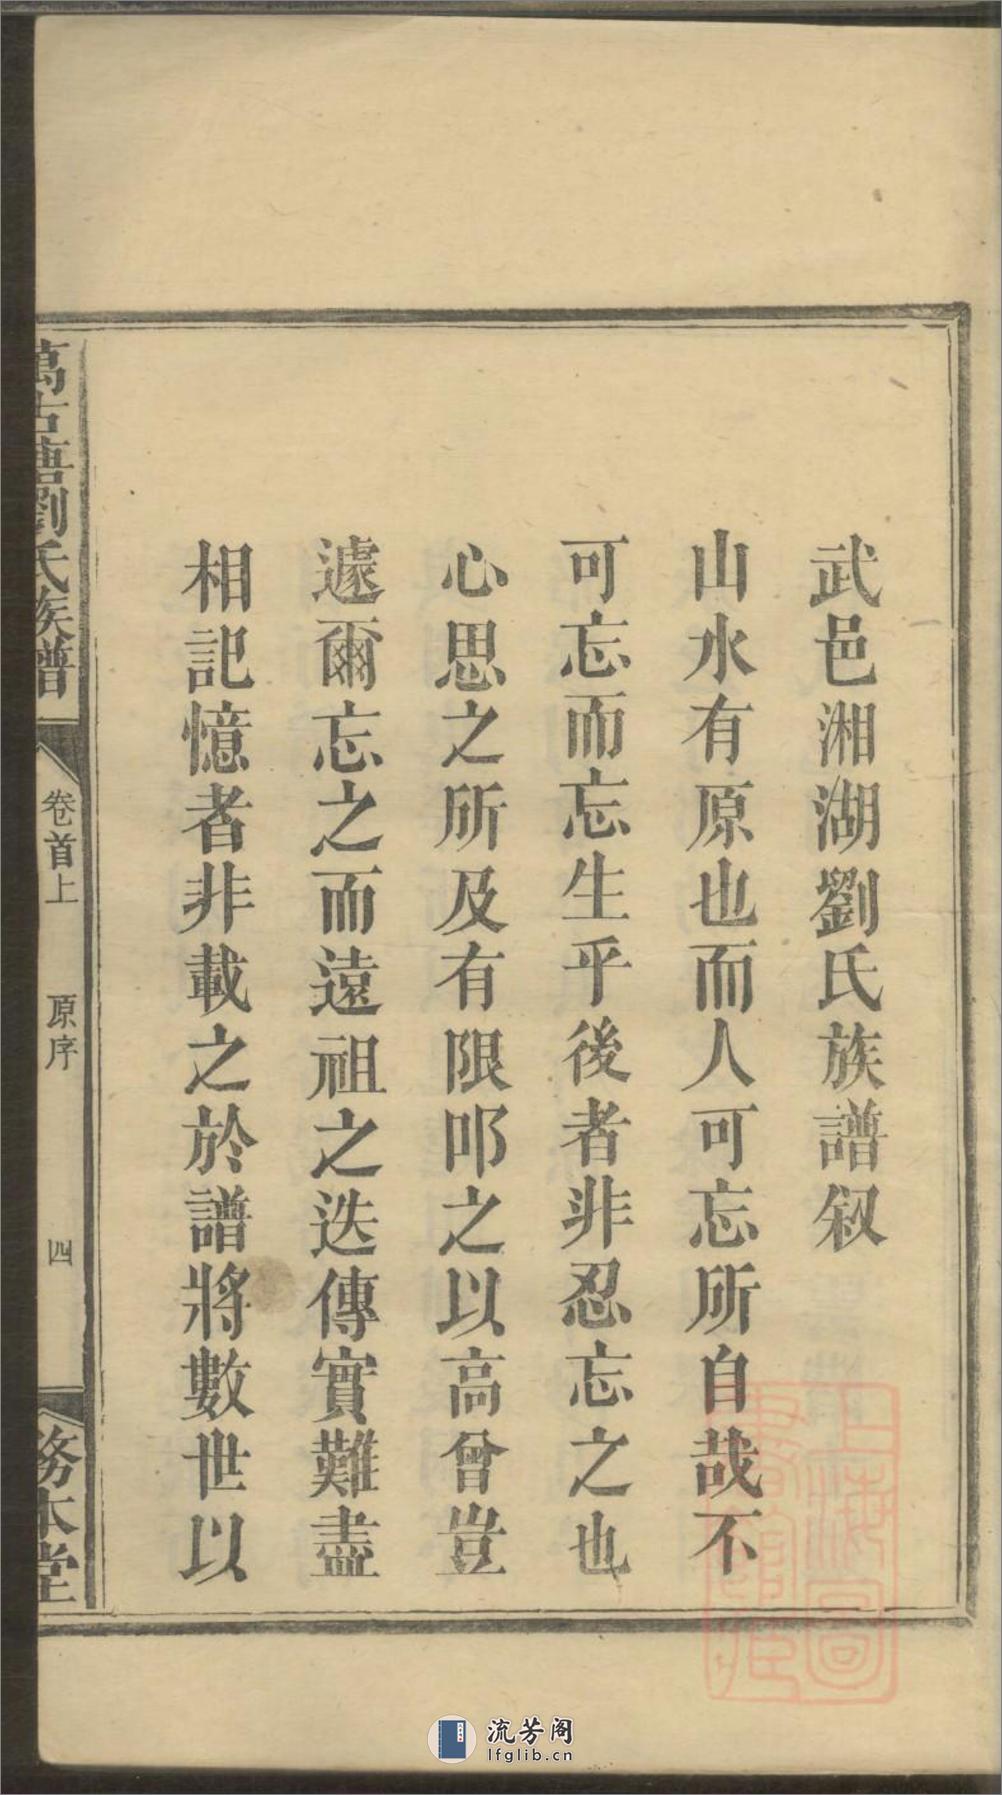 武邑湘湖劉氏族譜叙
山水有原也而人可忘所自哉不
可忘而忘生乎後者非忍忘之也
心思之所及有限叩之以高曾豈
遽爾忘之而遠祖之迭傳實難盡
相記憶者非載之於譜將數世以
萬古塘劉氏族譜
卷首上
原序
四
務本堂
上海圖
書館藏
流芳阁
lfglib.cn